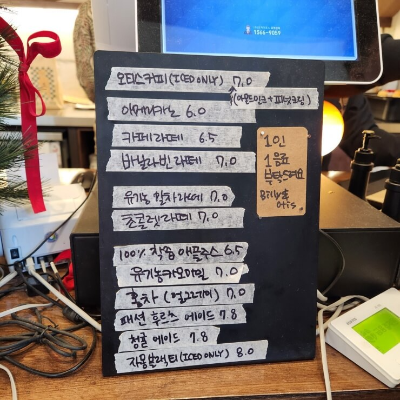 1566-9059
오티스커피 (ICED ONLY) 7.0
(아몬드밀크+피넛크림)
아메리카노 6.0
카페라떼 6.5
바닐라빈라떼 7.0
유기농 말차라떼 7.0
초콜릿라떼 7.0
100% 착즙 애플쥬스 6.5
유기농카모마일 7.0
홍차 (얼그레이) 7.0
패션 후르츠 에이드 7.8
청귤 에이드 7.8
자몽블랙티 (ICED ONLY) 8.0
1인
1음료
부탁드려요
Billy&
Otis.